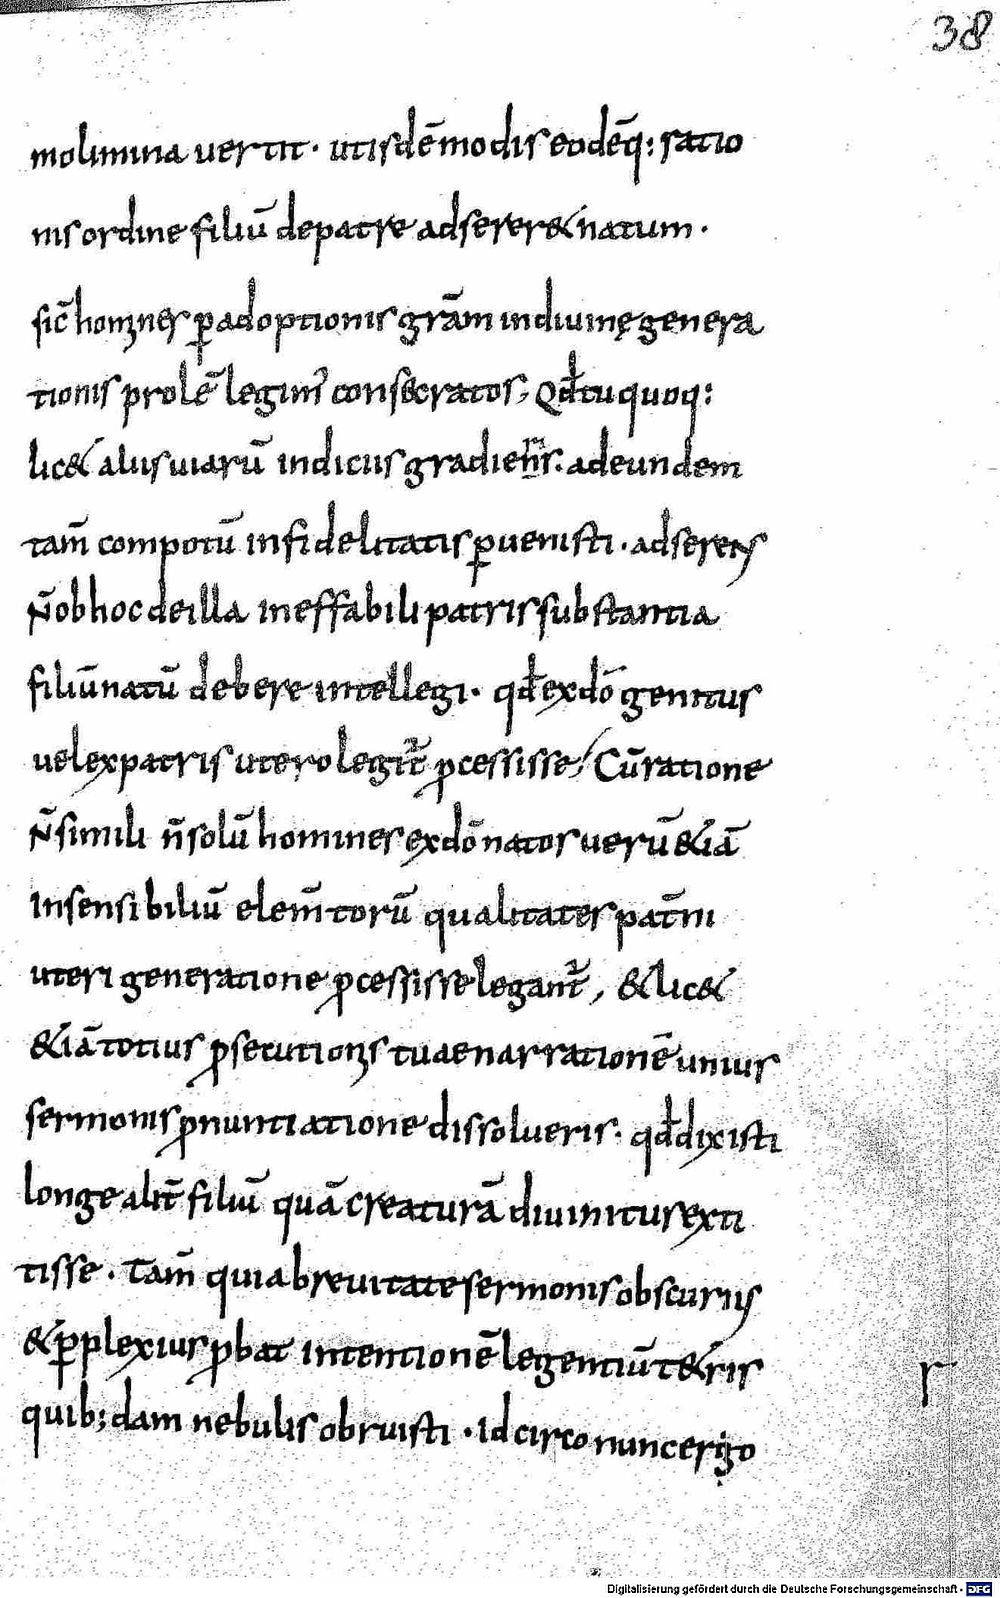 38
molimina vertit · utisdē modis eodēq: ratio
nis ordine filiū de patre adserer& natum ·
sic̄ homines p̱ adoptionis grām in diuinę genera
tionis prolē legim̄ consecratos; Qđ tu quoq:
lic& aliis uiarū indiciis gradieris. ad eundem
tam̄ compotū infidelitatis p̱uenisti · adserens
n̄ ob hoc de illa ineffabili patris substantia
filiū natū debere intellegi · qđ ex dō genitus
uel ex patris utero legit̄ p̱cessisse; Cū ratione
n̄ simili n̄ solū homines ex dō natos uerū &iā
insensibiliū elem̄torū qualitates pat̄ni
uteri generatione p̱cessisse legant̄, & lic&
&iā totius p̱secutionis tuae narrationē unius
sermonis p̱nuntiatione dissolueris · qđ dixisti
longe alit̄ filiū quā creaturā diuinitus exti
tisse · Tam̄ quia breuitate sermonis obscuriis
& p̱plexius p̱bat intentionē legentiū t&ris
quib; dam nebulis obruisti · Idcirco nunc ergo
r
Digitalisierung gefördert durch die Deutsche Forschungsgemeinschaft - DFG